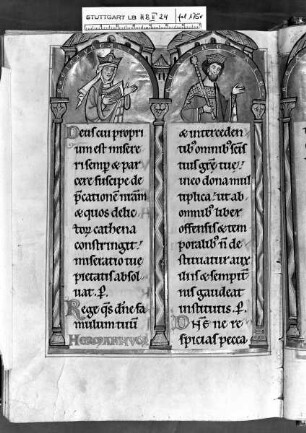 STUTTGART LB H.B. II 24 fol 175v
Deus cui propri
um est misere
ri semp & par
cere suscipe de
p̄cationem nr̄am
& quos delic
torꝝ cathena
constringit
miseratio tue
pietatis absol
uat. P̲.
Rege qs dn̄e fa
mulum tuū
HERMANNVM
& interceden
tib; omnib; scīs
tuis gr̄e tue
in eo dona mul
tiplica. ut ab
omnib; liber
offensis & tem
poralib; n̄ de
stituatur aux
iliis & sempitni
nis gaudeat
institutis. P̲.
DNE ne re
spicias pecca